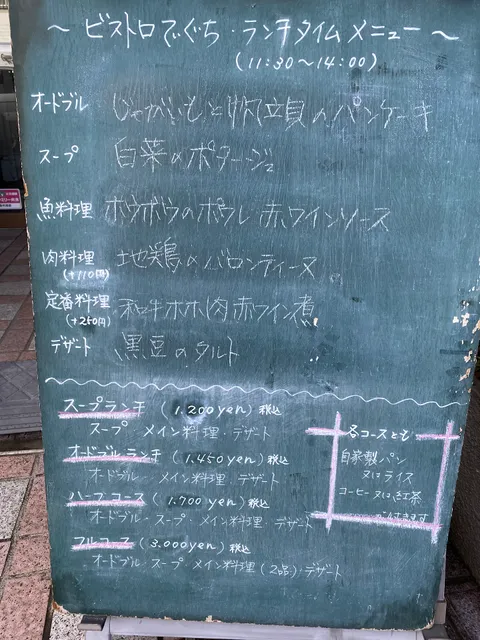 ～ ビストロでぐち・ランチタイムメニュー ～
(11:30～14:00)
オードブル じゃがいもと帆立貝のパンケーキ
スープ 白菜のポタージュ
魚料理 ホウボウのポワレ 赤ワインソース
肉料理 地鶏のバロンティーヌ
(+110円)
定番料理 和牛ホホ肉赤ワイン煮
(+250円)
デザート 黒豆のタルト
スープランチ (1.200yen) 税込
スープ メイン料理・デザート
オードブルランチ (1.450yen) 税込
オードブル・メイン料理・デザート
ハーフコース (1.700yen) 税込
オードブル・スープ・メイン料理・デザート
フルコース (3.000yen) 税込
オードブル・スープ メイン料理(2品)・デザート
各コースとも
自家製パン
又はライス
コーヒー又は紅茶